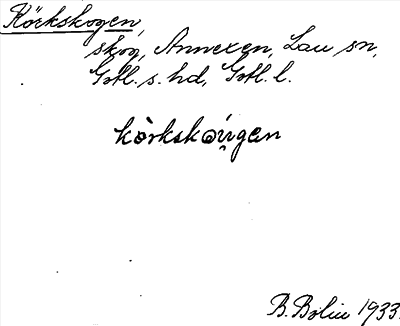 Körkskogen,
skog, Annexen, Lau sn,
Gotl. s. hd, Gotl. l.
kòrkskóugen
B. Bolin 1933.